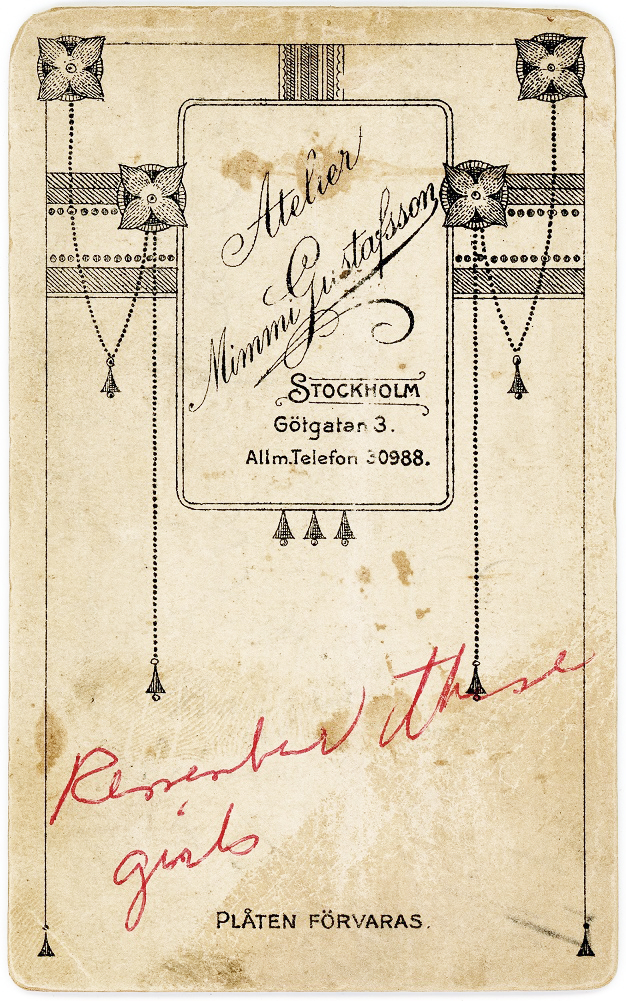 Atelier
Mimmi Gustafsson
STOCKHOLM
Götgatan 3.
Allm.Telefon 30988.
Remember these
girls
PLÅTEN FÖRVARAS.